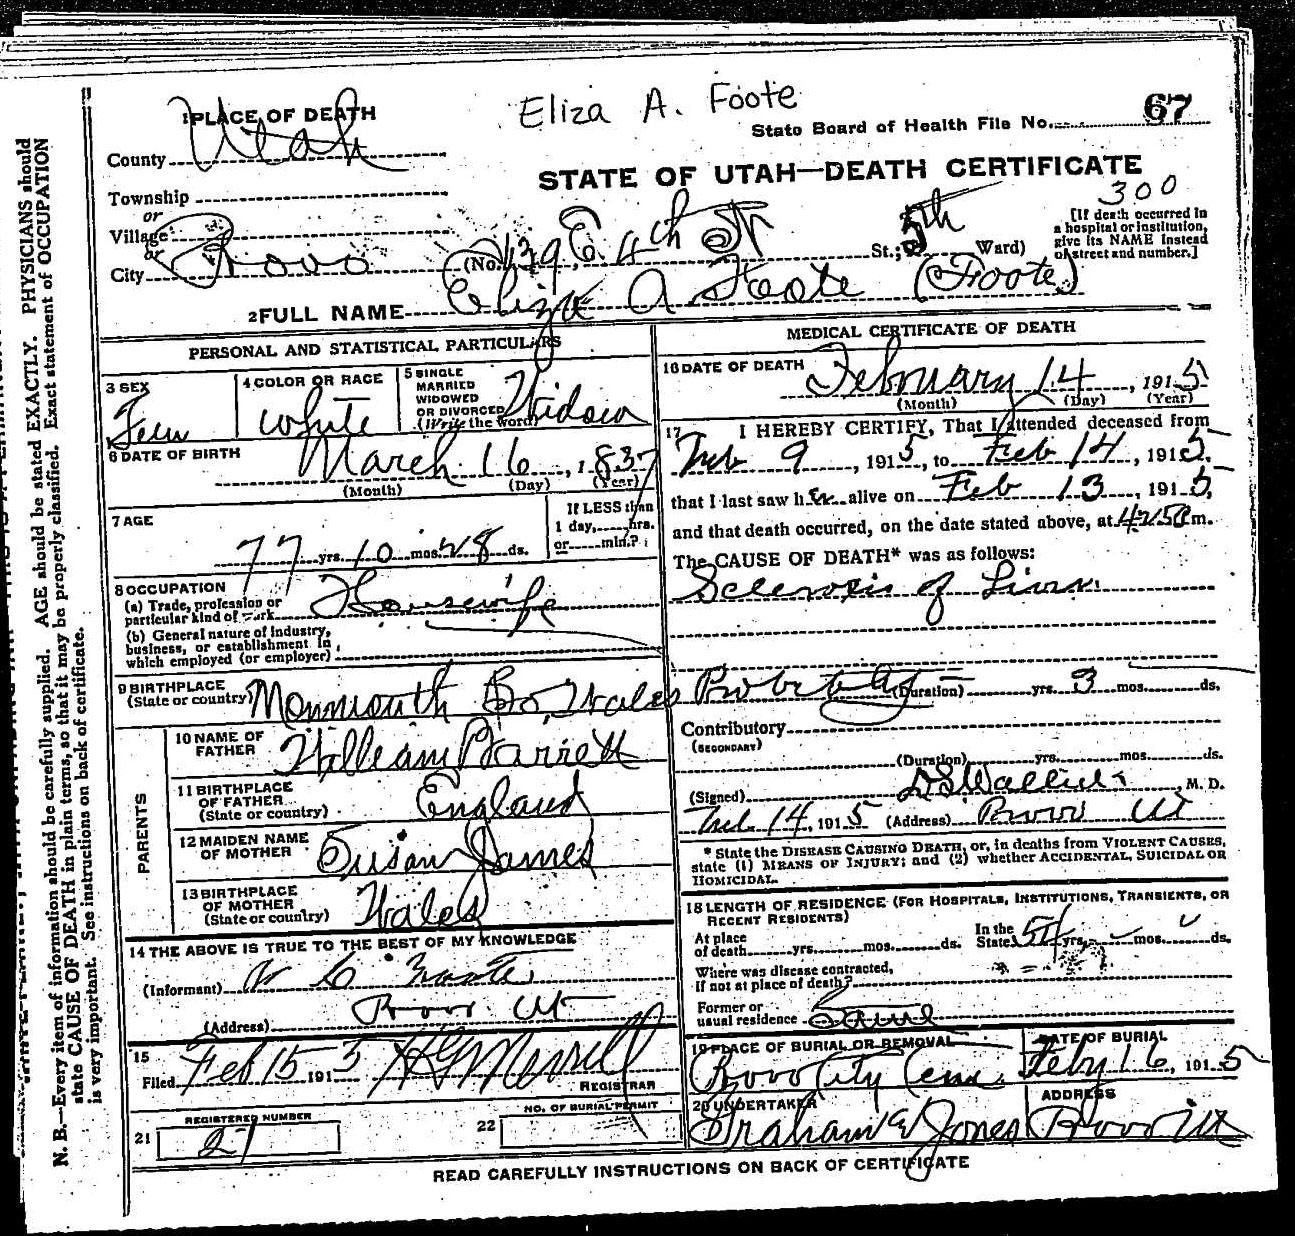 Eliza A. Foote
1 PLACE OF DEATH
State Board of Health File No. 67
County Utah
STATE OF UTAH—DEATH CERTIFICATE
300
Township
or
Village
or
City Provo
(No. 439 E. 4th St St.; 5th Ward)
[If death occurred in
a hospital or institution,
give its NAME instead
of street and number.]
2 FULL NAME Eliza A Foote (Foote)
PERSONAL AND STATISTICAL PARTICULARS
3 SEX
Fem
4 COLOR OR RACE
White
5 SINGLE
MARRIED
WIDOWED
OR DIVORCED
(Write the word)
Widow
6 DATE OF BIRTH
March 16, 1837
(Month) (Day) (Year)
7 AGE
77 yrs. 10 mos. 28 ds.
If LESS than
1 day, hrs.
or min.?
8 OCCUPATION
(a) Trade, profession or
particular kind of work Housewife
(b) General nature of industry,
business, or establishment in
which employed (or employer)
9 BIRTHPLACE
(State or country) Monmouth Co, Wales
PARENTS
10 NAME OF
FATHER William Barrett
11 BIRTHPLACE
OF FATHER
(State or country) England
12 MAIDEN NAME
OF MOTHER Susan James
13 BIRTHPLACE
OF MOTHER
(State or country) Wales
14 THE ABOVE IS TRUE TO THE BEST OF MY KNOWLEDGE
(Informant) Foote
(Address) Provo Ut
15
Filed Feb 15 1915 H G Merrill
REGISTRAR
REGISTERED NUMBER
21 27
NO. OF BURIAL PERMIT
22
MEDICAL CERTIFICATE OF DEATH
16 DATE OF DEATH
February 14, 1915
(Month) (Day) (Year)
17 I HEREBY CERTIFY, That I attended deceased from
Feb 9, 1915, to Feb 14, 1915,
that I last saw her alive on Feb 13, 1915,
and that death occurred, on the date stated above, at m.
The CAUSE OF DEATH* was as follows:
Sclerosis of Liver
Probably (Duration) yrs. 3 mos. ds.
Contributory
(SECONDARY)
(Duration) yrs. mos. ds.
(Signed) M. D.
Feb 14, 1915 (Address) Provo Ut
* State the DISEASE CAUSING DEATH, or, in deaths from VIOLENT CAUSES,
state (1) MEANS OF INJURY; and (2) whether ACCIDENTAL, SUICIDAL OR
HOMICIDAL.
18 LENGTH OF RESIDENCE (FOR HOSPITALS, INSTITUTIONS, TRANSIENTS, OR
RECENT RESIDENTS)
At place
of death yrs. mos. ds.
In the
State 54 yrs. mos. ds.
Where was disease contracted,
if not at place of death?
Former or
usual residence Same
19 PLACE OF BURIAL OR REMOVAL
Provo City Cem.
DATE OF BURIAL
Feby 16, 1915
20 UNDERTAKER
Graham & Jones
ADDRESS
Provo Ut
READ CAREFULLY INSTRUCTIONS ON BACK OF CERTIFICATE
N. B.—Every item of information should be carefully supplied. AGE should be stated EXACTLY. PHYSICIANS should
state CAUSE OF DEATH in plain terms, so that it may be properly classified. Exact statement of OCCUPATION
is very important. See instructions on back of certificate.